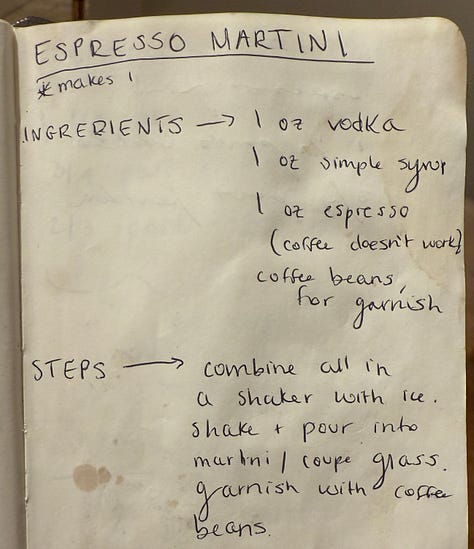 ESPRESSO MARTINI
* makes 1
INGREDIENTS → 1 oz vodka
1 oz simple syrup
1 oz espresso
(coffee doesn't work)
coffee beans,
for garnish
STEPS → combine all in
a shaker with ice.
shake + pour into
martini/coupe glass.
garnish with coffee
beans.